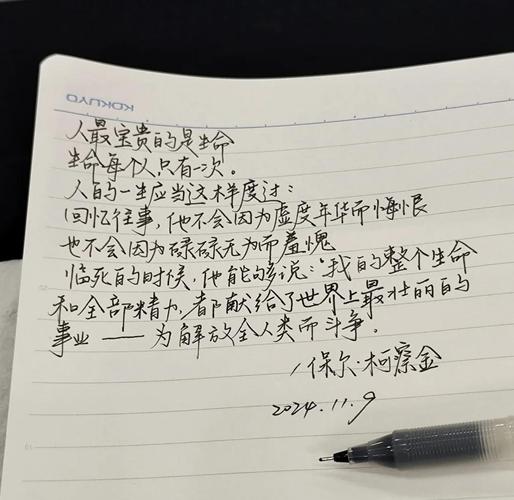 KOKUYO
人最宝贵的是生命
生命每个人只有一次。
人的一生应当这样度过：
回忆往事，他不会因为虚度年华而悔恨
也不会因为碌碌无为而羞愧
临死的时候，他能够说："我的整个生命
和全部精力，都献给了世界上最壮丽的
事业——为解放全人类而斗争。
/保尔·柯察金
2024.11.9